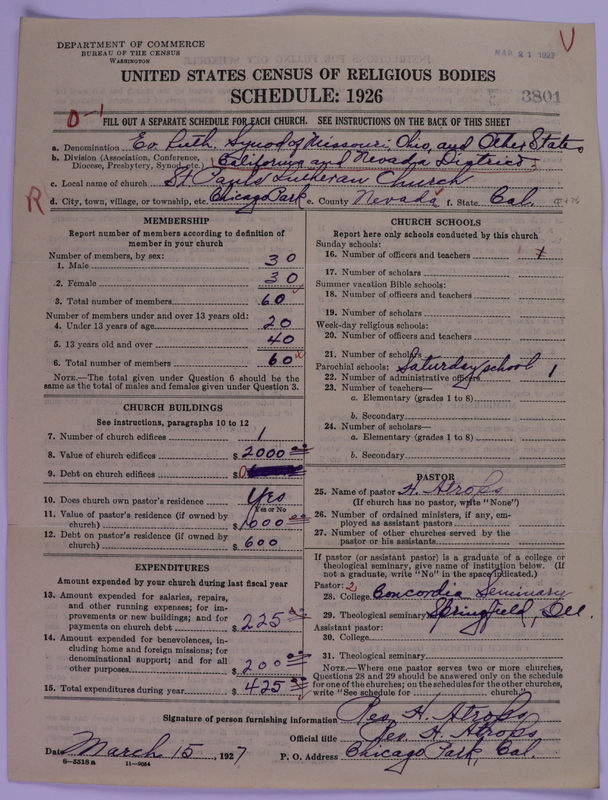 DEPARTMENT OF COMMERCE
BUREAU OF THE CENSUS
WASHINGTON
MAR 21 1927
V
UNITED STATES CENSUS OF RELIGIOUS BODIES
SCHEDULE: 1926
E 3801
D-1
FILL OUT A SEPARATE SCHEDULE FOR EACH CHURCH. SEE INSTRUCTIONS ON THE BACK OF THIS SHEET
a. Denomination Ev. Luth. Synod of Missouri, Ohio, and Other States
b. Division (Association, Conference, Diocese, Presbytery, Synod, etc.) California and Nevada District
c. Local name of church St Pauls Lutheran Church
R
d. City, town, village, or township, etc. Chicago Park e. County Nevada f. State Cal.
MEMBERSHIP
Report number of members according to definition of
member in your church
Number of members, by sex:
1. Male 30
2. Female 30
3. Total number of members 60
Number of members under and over 13 years old:
4. Under 13 years of age 20
5. 13 years old and over 40
6. Total number of members 60
NOTE.—The total given under Question 6 should be the
same as the total of males and females given under Question 3.
CHURCH BUILDINGS
See instructions, paragraphs 10 to 12
7. Number of church edifices 1
8. Value of church edifices $ 2000
9. Debt on church edifices $
10. Does church own pastor's residence Yes
Yes or No
11. Value of pastor's residence (if owned by
church) $ 1000
12. Debt on pastor's residence (if owned by
church) $ 600
EXPENDITURES
Amount expended by your church during last fiscal year
13. Amount expended for salaries, repairs,
and other running expenses; for im-
provements or new buildings; and for
payments on church debt $ 225
14. Amount expended for benevolences, in-
cluding home and foreign missions; for
denominational support; and for all
other purposes $ 200
15. Total expenditures during year $ 425
CHURCH SCHOOLS
Report here only schools conducted by this church
Sunday schools:
16. Number of officers and teachers
17. Number of scholars
Summer vacation Bible schools:
18. Number of officers and teachers
19. Number of scholars
Week-day religious schools:
20. Number of officers and teachers
21. Number of scholars
Parochial schools: Saturday school 1
22. Number of administrative officers
23. Number of teachers—
a. Elementary (grades 1 to 8)
b. Secondary
24. Number of scholars—
a. Elementary (grades 1 to 8)
b. Secondary
PASTOR
25. Name of pastor H. Atrops
(If church has no pastor, write "None")
26. Number of ordained ministers, if any, em-
ployed as assistant pastors
27. Number of other churches served by the
pastor or his assistants
If pastor (or assistant pastor) is a graduate of a college or
theological seminary, give name of institution below. (If
not a graduate, write "No" in the space indicated.)
Pastor: 2
28. College Concordia Seminary
29. Theological seminary Springfield, Ill.
Assistant pastor:
30. College
31. Theological seminary
NOTE.—Where one pastor serves two or more churches,
Questions 28 and 29 should be answered only on the schedule
for one of the churches; on the schedules for the other churches,
write "See schedule for church"
Signature of person furnishing information Rev. H. Atrops
Official title Rev. H. Atrops
Date March 15, 1927 P. O. Address Chicago Park, Cal.
6-5518 a 11-9054